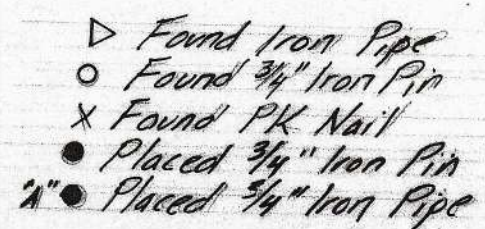 ▷ Found Iron Pipe
○ Found 3/4" Iron Pin
X Found PK Nail
● Placed 3/4" Iron Pin
"A" ● Placed 3/4" Iron Pipe